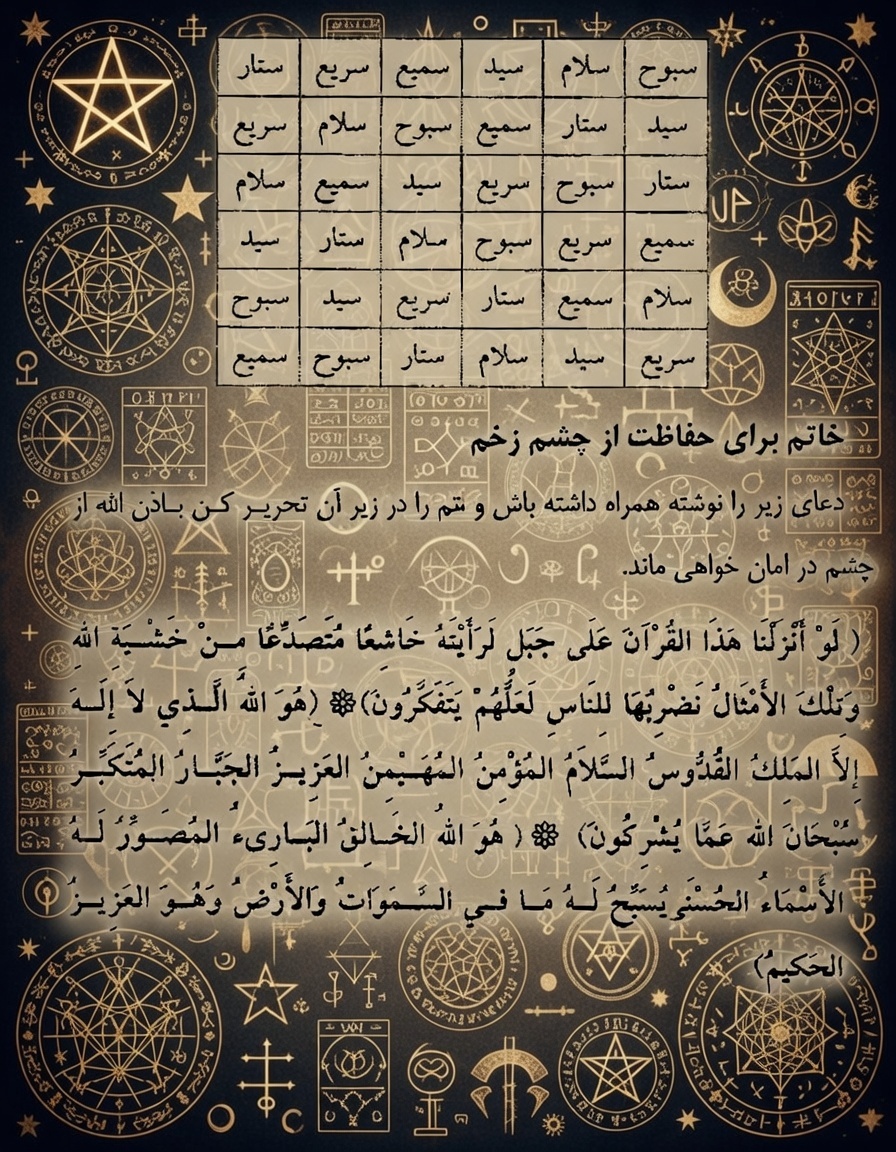 سبوح سلام سيد سميع سريع ستار
سيد ستار سميع سبوح سلام سريع
ستار سبوح سريع سيد سميع سلام
سميع سريع سبوح سلام ستار سيد
سلام سميع ستار سريع سيد سبوح
سريع سيد سلام ستار سبوح سميع
خاتم برای حفاظت از چشم زخم
دعای زیر را نوشته همراه داشته باش و تتم را در زیر آن تحریر کن باذن الله از
چشم در امان خواهی ماند.
( لَوْ أَنْزَلْنَا هَذَا القُرْآنَ عَلَى جَبَلٍ لَرَأَيْتَهُ خَاشِعًا مُتَصَدِّعًا مِنْ خَشْيَةِ اللهِ
وَتِلْكَ الأَمْثَالُ نَضْرِبُهَا لِلنَّاسِ لَعَلَّهُمْ يَتَفَكَّرُونَ) ۞ (هُوَ اللهُ الَّذِي لاَ إِلَهَ
إِلاَّ المَلِكُ القُدُّوسُ السَّلاَمُ المُؤْمِنُ المُهَيْمِنُ العَزِيزُ الجَبَّارُ المُتَكَبِّرُ
سُبْحَانَ اللهِ عَمَّا يُشْرِكُونَ) ۞ ( هُوَ اللهُ الخَالِقُ البَارِىءُ المُصَوِّرُ لَهُ
الأَسْمَاءُ الحُسْنَى يُسَبِّحُ لَهُ مَا فِي السَّمَوَاتِ وَالأَرْضِ وَهُوَ العَزِيزُ
الحَكِيمُ)